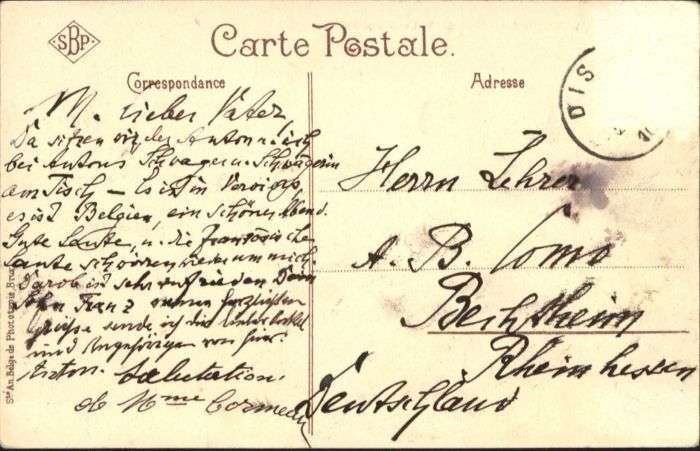 SBP
Carte Postale.
Correspondance
Adresse
M. lieber Vater,
Da sitzen wir, der Anton u. ich
bei Antons Schwager u. Schwägerin
am Tisch – Es ist in
es ist Belgien, ein schöner Abend.
Gute Leute, u. die Französischen
Laute schwirren um mich.
Darob ist sehr zufrieden Dein
Sohn Franz
Grüsse sende ich
und Angehörigen von hier.
Anton. Salutation
de Mme
Herrn Lehrer
A. B. Como
Bechtheim
Rheinhessen
Deutschland
DIS
Sté An. Belge de Phototypie Brux